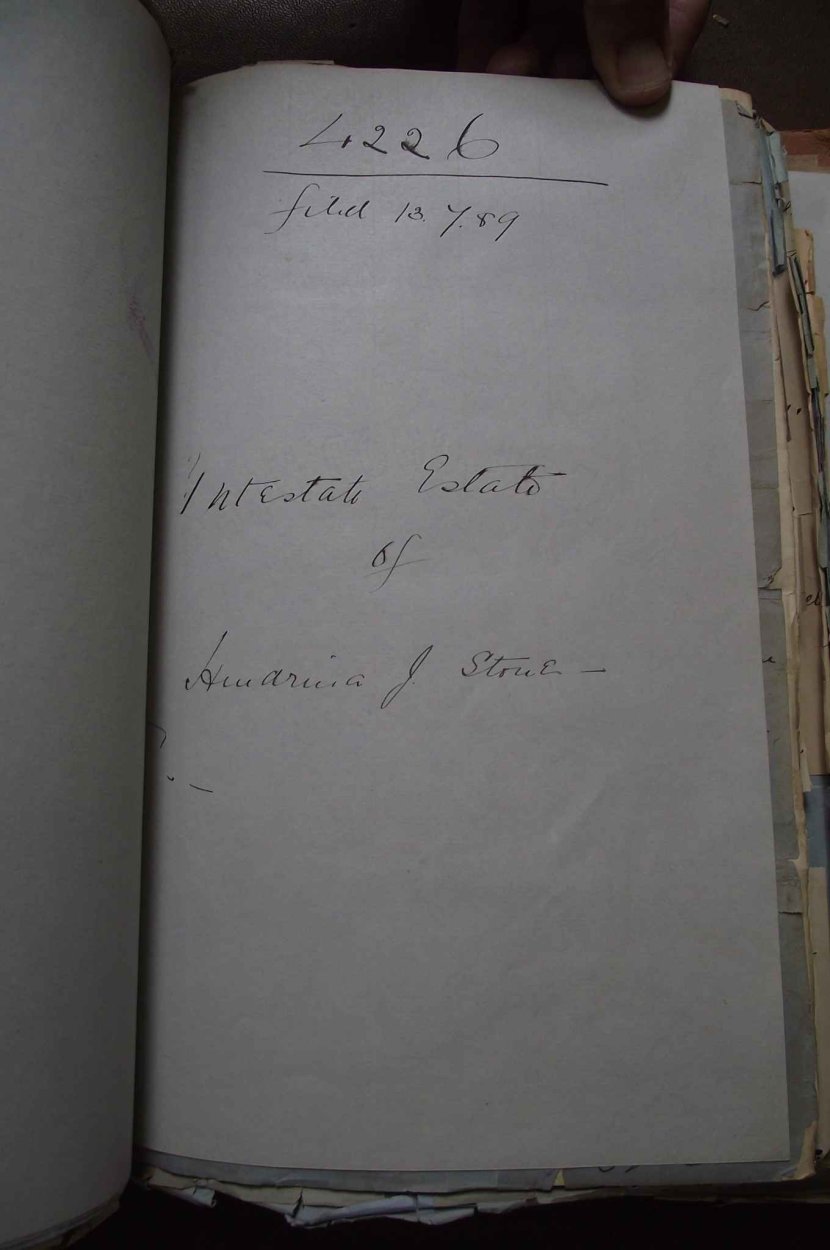 4226
filed 13.7.89
Intestate Estate
of
Hendrina J. Stone —